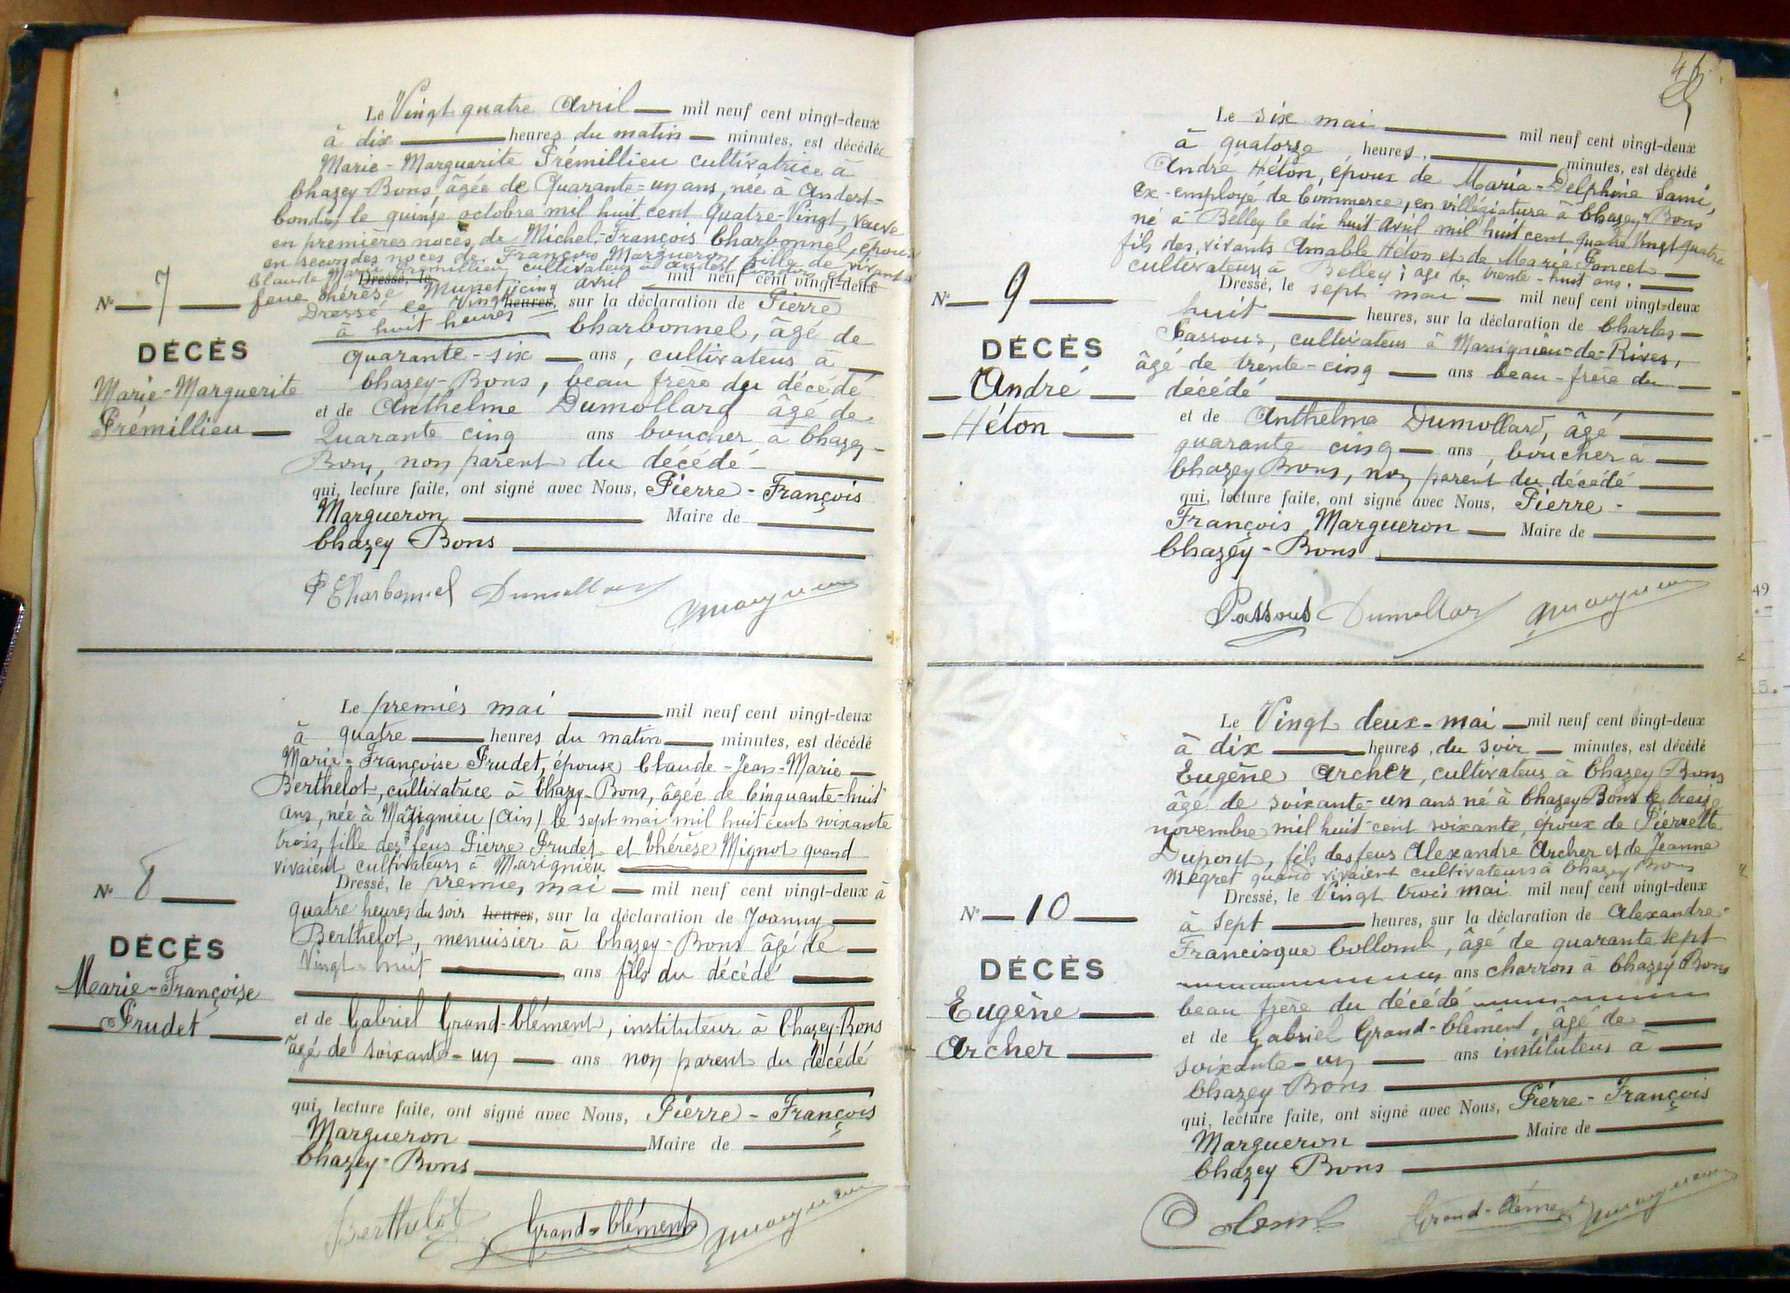 Le Vingt quatre Avril mil neuf cent vingt-deux
à dix heures du matin minutes, est décédée
Marie-Marguerite Prémillieu cultivatrice à
Chazey-Bons, âgée de Quarante-un ans, née à Andert-
Condon le quinze octobre mil huit cent Quatre-Vingt, Veuve
en premières noces de Michel-François Charbonnel, épouse
en secondes noces de François Margueron, fille de vivants
Claude Marie Prémillieu cultivateur à Andert Condon et de
feue Thérèse Munet
Dressé, le mil neuf cent vingt-deux
Dressé le Vingt cinq avril
heures, sur la déclaration de Pierre
à huit heures Charbonnel, âgé de
quarante-six ans, cultivateur à
Chazey-Bons, beau frère du décédé
et de Anthelme Dumollard âgé de
Quarante cinq ans boucher à Chazey-
Bons, non parent du décédé
qui, lecture faite, ont signé avec Nous, Pierre-François
Margueron Maire de
Chazey Bons
P Charbonnel Dumollard Margueron
N° 7
DÉCÈS
Marie-Marguerite
Prémillieu
Le premier mai mil neuf cent vingt-deux
à quatre heures du matin minutes, est décédé
Marie-Françoise Prudet, épouse Claude-Jean-Marie
Berthelot, cultivatrice à Chazey-Bons, âgée de Cinquante-huit
ans, née à Marignieu (Ain) le sept mai mil huit cent soixante
trois, fille des feus Pierre Prudet et Thérèse Mignot quand
vivaient cultivateurs à Marignieu
Dressé, le premier mai mil neuf cent vingt-deux à
quatre heures du soir heures, sur la déclaration de Joanny
Berthelot, menuisier à Chazey-Bons âgé de
Vingt-huit ans fils du décédé
et de Gabriel Grand-Clément, instituteur à Chazey-Bons
âgé de soixante-un ans non parent du décédé
qui, lecture faite, ont signé avec Nous, Pierre-François
Margueron Maire de
Chazey-Bons
Berthelot Grand-Clément Margueron
N° 8
DÉCÈS
Marie-Françoise
Prudet
Le six mai mil neuf cent vingt-deux
à quatorze heures, minutes, est décédé
André Héton, époux de Maria-Delphine Sami,
ex-employé de Commerce, en villégiature à Chazey-Bons
né à Belley le dix huit Avril mil huit cent quatre Vingt quatre
fils des vivants Amable Héton et de Marie Poncet
cultivateurs à Belley; age de trente-huit ans.
Dressé, le sept mai mil neuf cent vingt-deux
huit heures, sur la déclaration de Charles
Passous, cultivateur à Marignieu-de-Rives,
âgé de trente-cinq ans beau-frère du
décédé
et de Anthelme Dumollard, âgé
quarante cinq ans, boucher à
Chazey Bons, non parent du décédé
qui, lecture faite, ont signé avec Nous, Pierre-
François Margueron Maire de
Chazey-Bons
Passous Dumollard Margueron
N° 9
DÉCÈS
André
Héton
Le Vingt deux-mai mil neuf cent vingt-deux
à dix heures du soir minutes, est décédé
Eugène Archer, cultivateur à Chazey Bons
âgé de soixante-un ans né à Chazey-Bons le treize
novembre mil huit cent soixante, époux de Pierrette
Dupont, fils des feus Alexandre Archer et de Jeanne
Mégret quand vivaient cultivateurs à Chazey Bons
Dressé, le Vingt trois mai mil neuf cent vingt-deux
à sept heures, sur la déclaration de Alexandre-
Francisque Collomb, âgé de quarante sept
ans charron à Chazey Bons
beau frère du décédé
et de Gabriel Grand-Clément, âgé de
soixante-un ans instituteur à
Chazey Bons
qui, lecture faite, ont signé avec Nous, Pierre-François
Margueron Maire de
Chazey Bons
Collomb Grand-Clément Margueron
N° 10
DÉCÈS
Eugène
Archer
49